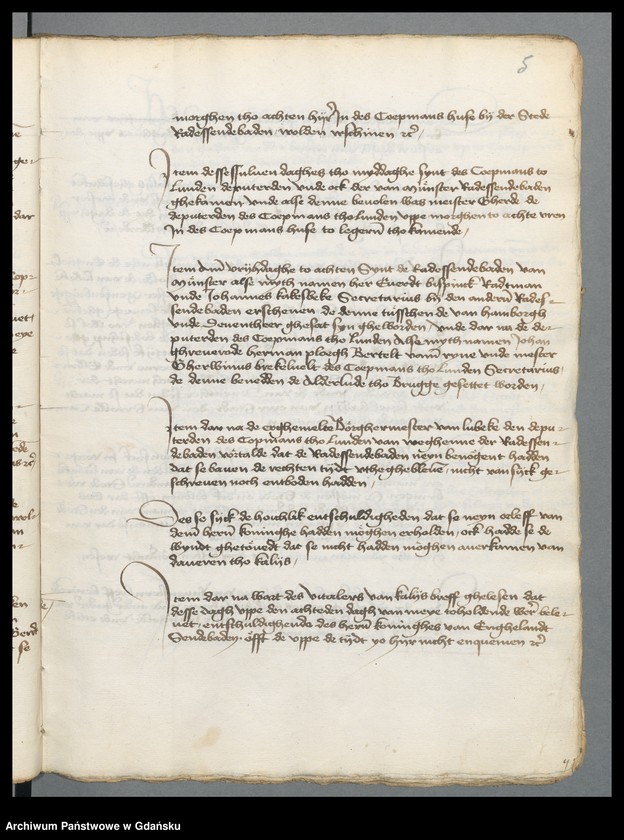 5
morghen tho achten hyr Jn des Coepmans huse bij der Stede
Radessendebaden wolden erschinen etc
Jtem desses suluen daghes tho myddaghe synt des Coepmans to
Lunden deputerden vnde ock der van Munster Radessendebaden
ghekamen vnde alse denne beuolen was meister Gherde de
deputerden des Coepmans tho Lunden vppe morghen to achte vren
Jn des Coepmans huse to legern tho kamende
Jtem Am vrijhdaghe to achten Synt de Radessendebaden van
Munster alse myth namen her Euerdt bisspinck Radtman
vnde Johannes kakesbeke Secretarius bij den andern Rades-
sendebaden erschenen de denne tusschende van hamborgh
vnde Deuentheer ghesat syn gheworden vnde dar na de de-
puterden des Coepmans tho Lunden Alse myth namen Johan
ghreuerode herman ploegh Bertelt vamme ryne vnde mester
Gherwinus brekeluelt des Coepmans tho Lunden Secretarius
de denne benedden de Alderlude tho Brugge gesettet worden
Jtem dar na de erghemelte Borghermester van lubeke den depu-
terden des Copmans tho Lunden van weghenne der Radessen-
debaden vertalde dat de Radessendebaden neyn benogent hadden
dat se bauen de rechten tijdt vtheghebleuen nicht van sijck ge-
schreuen noch entboden hadden
Des se sijck de hochlik entschuldigheden dat se neyn orleff van
dem hern koninghe hadden moghen erholden ock hadde se de
wyndt ghetouedt dat se nicht hadden moghen auerkamen van
daueren tho kalijs
Jtem dar na wart des vitalers van kalijs breff ghelesen dat
desse dagh vppe den achteden dagh van mere toholdende wer bele-
uet entschuldighende des hern koninghes van Enghelandt
Sendebaden offt de vppe de tijdt yo hyr nicht enquemen etc
Archiwum Państwowe w Gdańsku